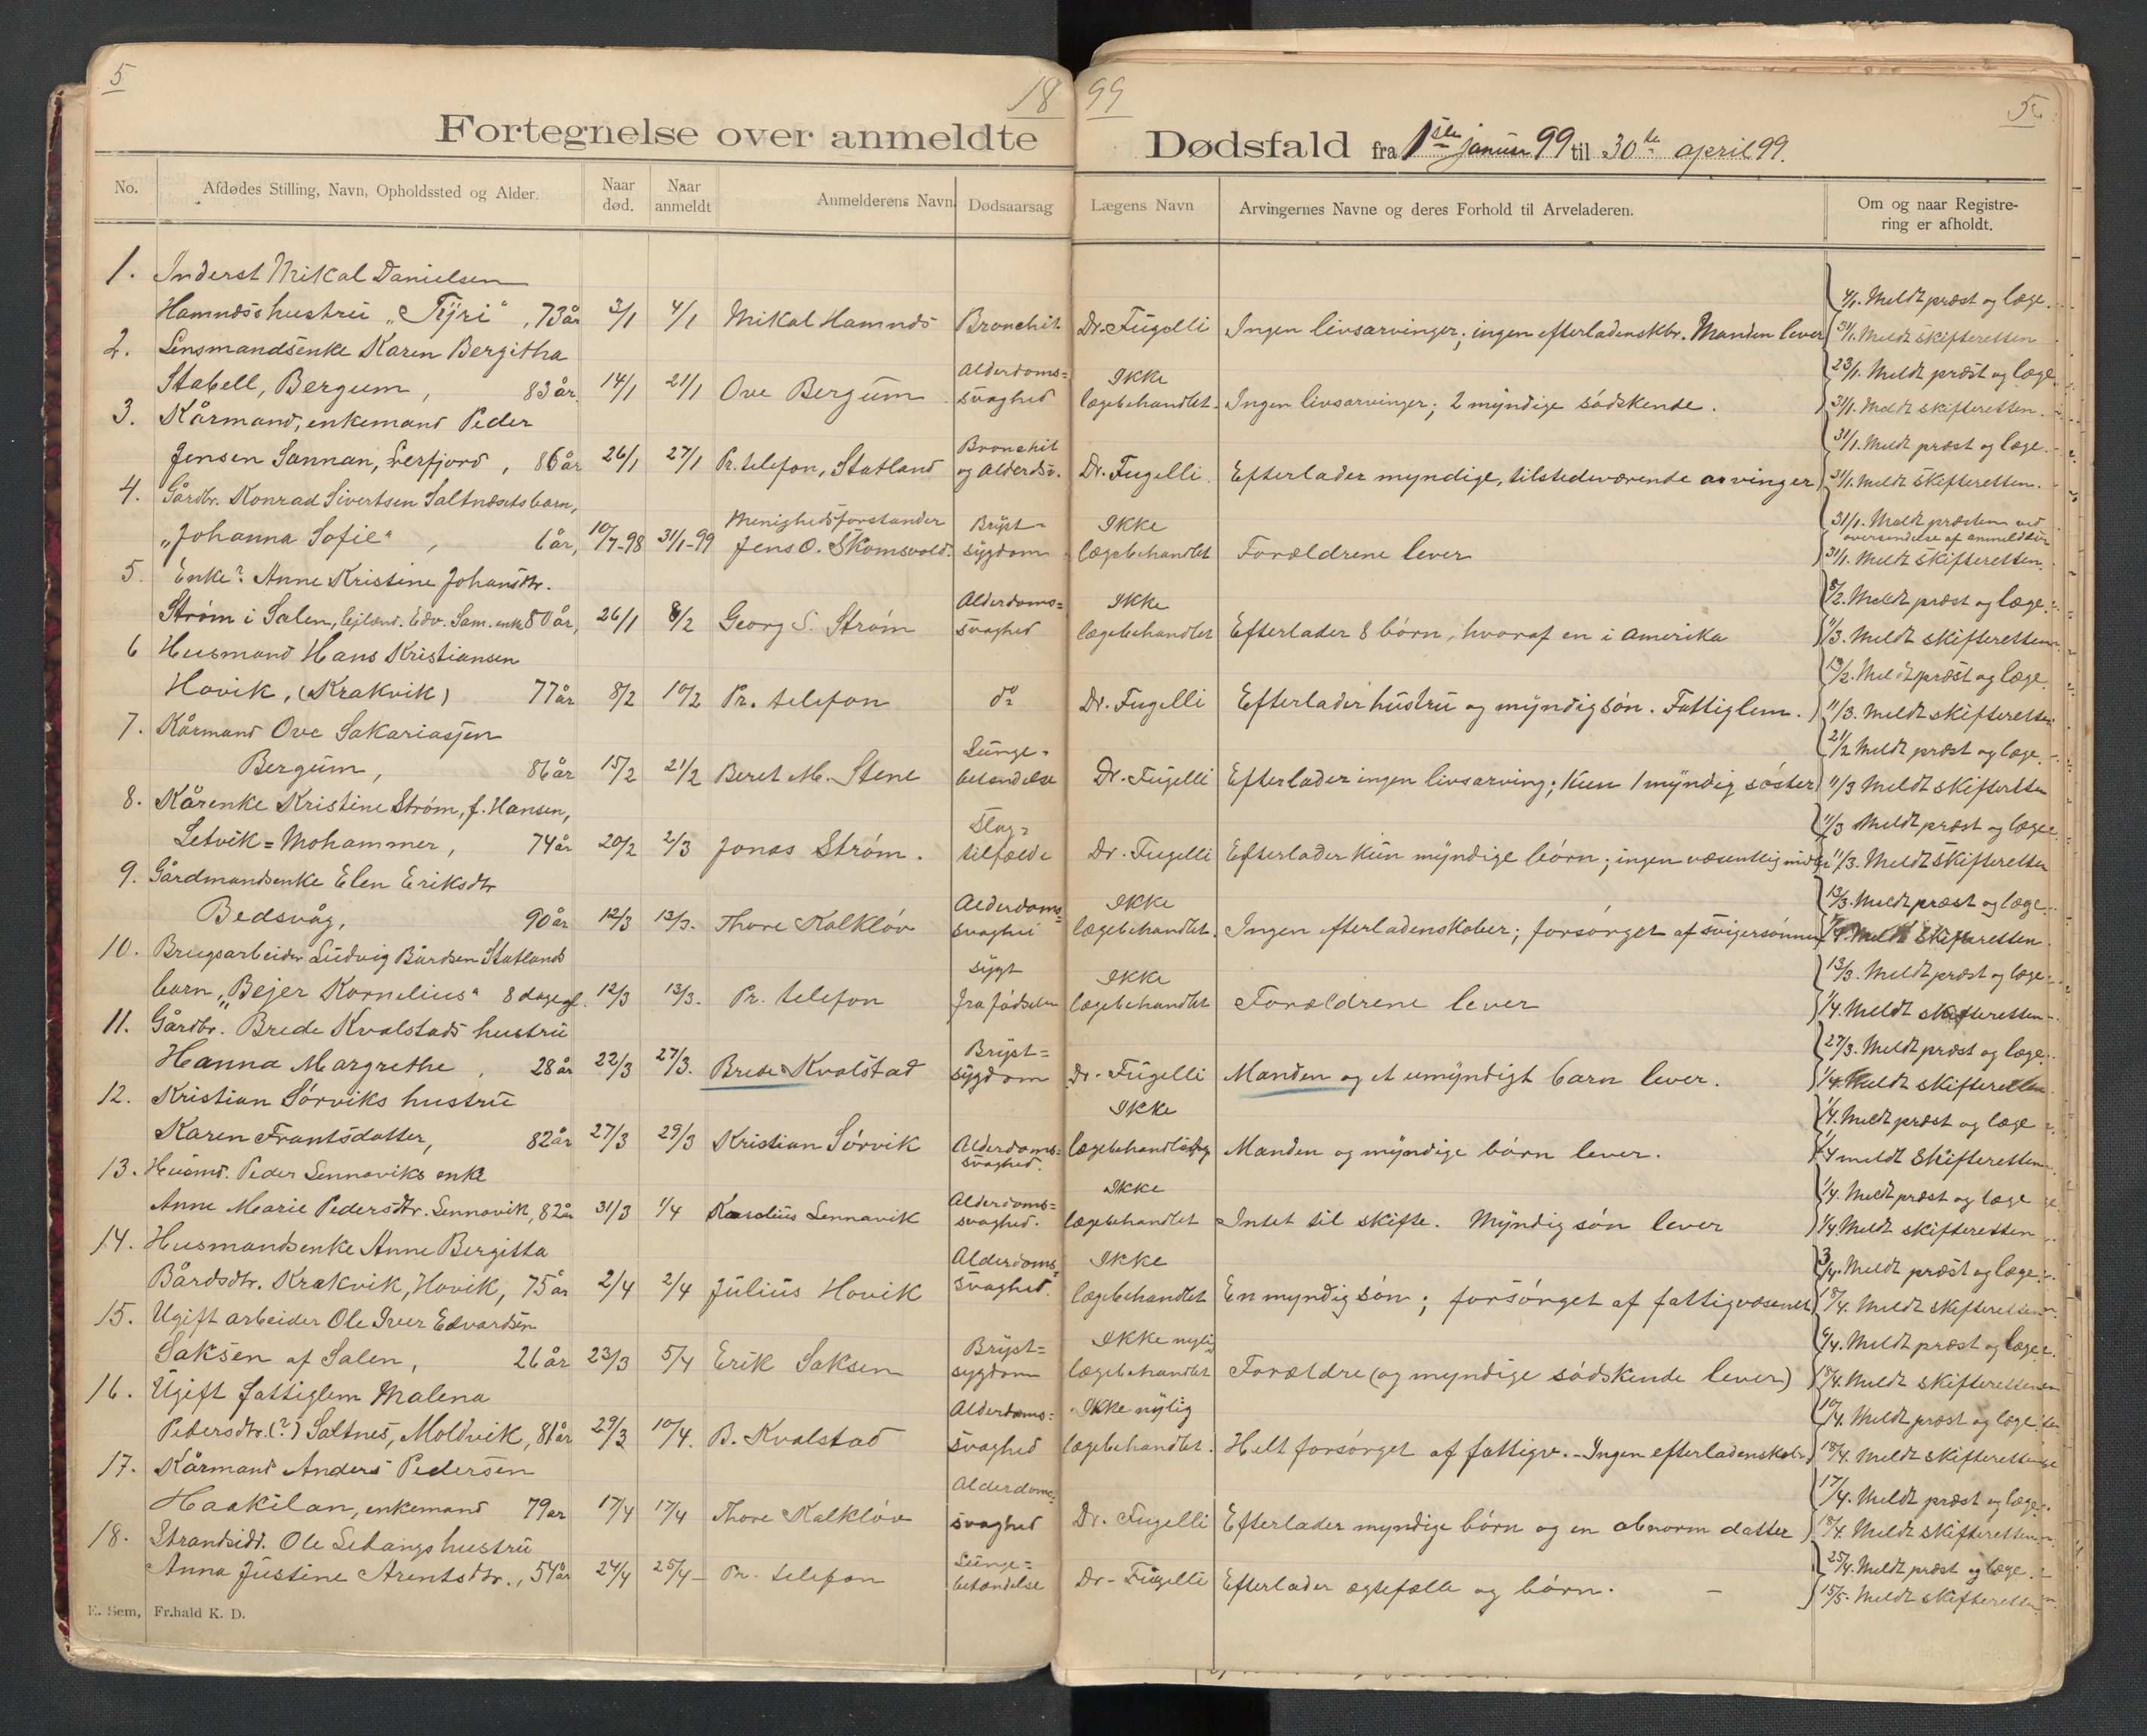 5
18
99
5
Fortegnelse over anmeldte Dødsfald fra 1ste januar 99 til 30te april 99.
No. Afdødes Stilling, Navn, Opholdssted og Alder. Naar død. Naar anmeldt Anmelderens Navn. Dødsaarsag Lægens Navn Arvingernes Navne og deres Forhold til Arveladeren. Om og naar Registrering er afholdt.
1. Inderst Mikal Danielsen
Hamnøs hustru „Tyri“, 73 år 3/1 4/1 Mikal Hamnøs Bronchit Dr. Fugelli Ingen livsarvinger; ingen efterladenskbr. Manden lever 4/1. Meldt præst og læge.
31/1. Meldt skifteretten
2. Lensmandsenke Karen Bergitha
Stabell, Bergum, 83 år. 14/1 21/1 Ove Bergum Alderdoms=svaghed Ikke lægebehandlet. Ingen livsarvinger; 2 myndige södskende. 23/1. Meldt præst og læge.
31/1. Meldt skifteretten.
3. Kårmand, enkemand Peder
Jensen Sannan, Lerfjord, 86 år 26/1 27/1 Pr. telefon, Statland Bronchit og Alderdsv. Dr. Fugelli. Efterlader myndige, tilstedeværende arvinger 31/1. Meldt præst og læge.
31/1. Meldt skifteretten.
4. Gårdbr. Konrad Sivertsen Saltnæsets barn,
„Johanna Sofie“, 6 år, 10/7-98 31/1-99 Menighedsforstander Jens O. Skomsvold. Bryst=sygdom Ikke lægebehandlet Forældrene lever 31/1. Meldt præsten ved oversendelse af anmeldelsen
31/1. Meldt skifteretten.
5. Enke? Anne Kristine Johansdtr.
Strøm i Salen, lejlænd. Edv. Sam. enke 80 år, 26/1 8/2 Georg S. Strøm Alderdoms=svaghed Ikke lægebehandlet Efterlader 8 börn, hvoraf en i Amerika 8/2. Meldt præst og læge.
11/3. Meldt skifteretten
6 Husmand Hans Kristiansen
Hovik, (Krakvik) 77 år 8/2 10/2 Pr. telefon do Dr. Fugelli Efterlader hustru og myndig sön. Fattiglem. 13/2. Meldt præst og læge.
11/3. Meldt skifteretten
7. Kårmand Ove Sakariasjen
Bergum, 86 år 15/2 21/2 Beret M. Stene Lunge=betændelse Dr. Fugelli Efterlader ingen livsarving; kun 1 myndig söster 21/2 Meldt præst og læge.
11/3 Meldt skifteretten
8. Kårenke Kristine Strøm, f. Hansen,
Setvik=Mohammer, 74 år 20/2 2/3 Jonas Strøm. Slag=tilfælde Dr. Fugelli Efterlader kun myndige börn; ingen væsentlig midler 11/3 Meldt præst og læge
11/3. Meldt skifteretten
9. Gårdmandsenke Elen Eriksdtr
Bedsvåg, 90 år 12/3 13/3. Thore Kalkløv Alderdoms=svaghed Ikke lægebehandlet. Ingen efterladenskaber; forsörget af svigersönnen 13/3. Meldt præst og læge.
1/4. Meldt skifteretten
10. Brugsarbeider Ludvig Bårdsen Statlands
barn, „Bejer Kornelius“ 8 dage gl. 12/3 13/3. Pr. telefon Sygt fra födselen Ikke lægebehandlet Forældrene lever 13/3. Meldt præst og læge
1/4. Meldt skifteretten
11. Gårdbr. Brede Kvalstads hustru
Hanna Margrethe, 28 år 22/3 27/3. Brede Kvalstad Bryst=sygdom Dr. Fugelli Manden og et umyndigt barn lever. 27/3. Meldt præst og læge.
1/4. Meldt skifteretten
12. Kristian Sörviks hustru
Karen Frantsdatter, 82 år 27/3 29/3 Kristian Sörvik Alderdoms=svaghed. Ikke lægebehandlet Manden og myndige börn lever. 1/4. Meldt præst og læge
1/4 meldt skifteretten
13. Husmd. Peder Sennaviks enke
Anne Marie Pedersdtr. Sennavik, 82 år 31/3 1/4 Karolius Sennavik Alderdoms=svaghed. Ikke lægebehandlet Intet til skifte. Myndig sön lever 1/4. Meldt præst og læge
1/4 Meldt skifteretten
14. Husmandsenke Anne Bergitta
Bårdsdtr. Krakvik, Hovik, 75 år 2/4 2/4 Julius Hovik Alderdoms=svaghed. Ikke lægebehandlet En myndig sön; forsörget af fattigvæsenet 3/4. Meldt præst og læge.
18/4. Meldt skifteretten
15. Ugift arbeider Ole Iver Edvardsen
Saksen af Salen, 26 år 23/3 5/4 Erik Saksen Bryst=sygdom Ikke nylig lægebehandlet Forældre (og myndige södskende lever) 6/4. Meldt præst og læge.
18/4. Meldt skifteretten
16. Ugift fattiglem Malena
Pedersdtr. (?) Saltnes, Moldvik, 81 år 29/3 10/4. B. Kvalstad Alderdoms=svaghed Ikke nylig lægebehandlet. Helt forsörget af fattigv. - Ingen efterladenskabr 10/4. Meldt præst og læge
18/4. Meldt skifteretten
17. Kårmand Anders Pedersen
Haakilan, enkemand 79 år 17/4 17/4 Thore Kalkløv Alderdoms=svaghed Dr. Fugelli Efterlader myndige börn og en abnorm datter 17/4. Meldt præst og læge.
18/4. Meldt skifteretten
18. Strandsidd. Ole Setangs hustru
Anna Justine Arentsdtr., 54 år 24/4 25/4 Pr. telefon Lunge=betændelse Dr. Fugelli Efterlader ægtefælle og börn. 25/4. Meldt præst og læge.
15/5. Meldt skifteretten
E. Sem, Fr.hald K. D.